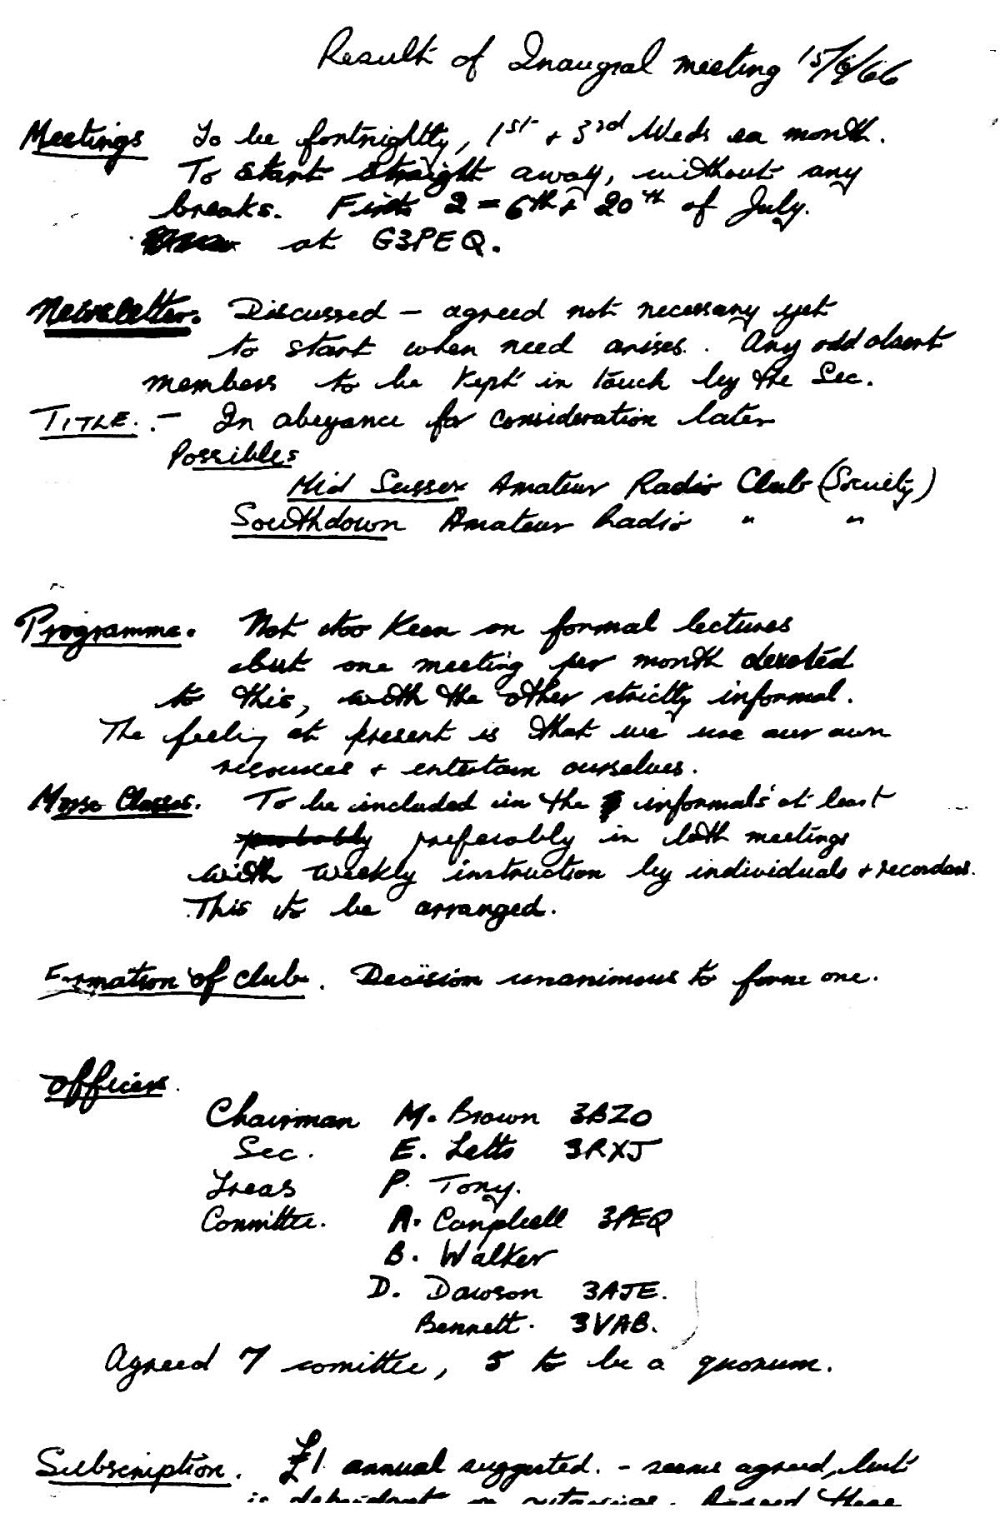 Result of Inaugral meeting 15/6/66
Meetings To be fortnightly, 1st + 3rd Weds ea month.
To start straight away, without any
breaks. First 2 = 6th + 20th of July.
at G3PEQ.
Newsletter. Discussed – agreed not necessary yet
to start when need arises. Any odd absent
members to be kept in touch by the Sec.
TITLE. :– In abeyance for consideration later
Possibles
Mid Sussex Amateur Radio Club (Society)
Southdown Amateur Radio " "
Programme. Not too keen on formal lectures
but one meeting per month devoted
to this, with the other strictly informal.
The feeling at present is that we use our own
resources + entertain ourselves.
Morse Classes. To be included in the informals at least
probably preferably in both meetings
with weekly instruction by individuals + recorders.
This to be arranged.
Formation of club. Decision unanimous to form one.
Officers.
Chairman M. Brown 3BZO
Sec. E. Letts 3RXJ
Treas P. Tony.
Committee. A. Campbell 3PEQ
B. Walker
D. Dawson 3AJE.
Bennett. 3VAB.
Agreed 7 comittee, 5 to be a quorum.
Subscription. £1 annual suggested. – seems agreed, but
is dependant on